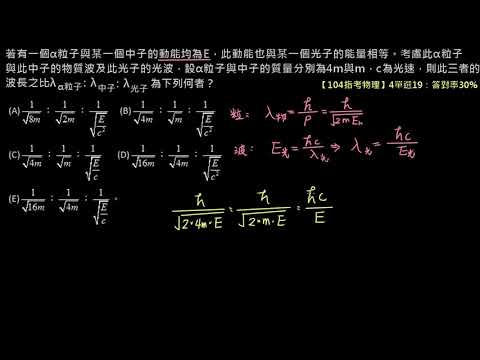 若有一個α粒子與某一個中子的動能均為E，此動能也與某一個光子的能量相等。考慮此α粒子
與此中子的物質波及此光子的光波，設α粒子與中子的質量分別為4m與m，c為光速，則此三者的
波長之比λα粒子：λ中子：λ光子 為下列何者？
【104指考物理】4單逛19：答對率30%
(A) 1/√8m : 1/√2m : 1/√(E/c²) (B) 1/√4m : 1/√m : 1/√(E/c²)
(C) 1/√4m : 1/√m : 1/√(E/c) (D) 1/√16m : 1/√4m : 1/√(E/c²)
(E) 1/√16m : 1/√4m : 1/√(E/c)。
粒： λ物 = ℏ/P = ℏ/√2mEₖ
波： E光 = ℏc/λ光 ⇒ λ光 = ℏc/E光
ℏ/√2·4m·E = ℏ/√2·m·E = ℏc/E